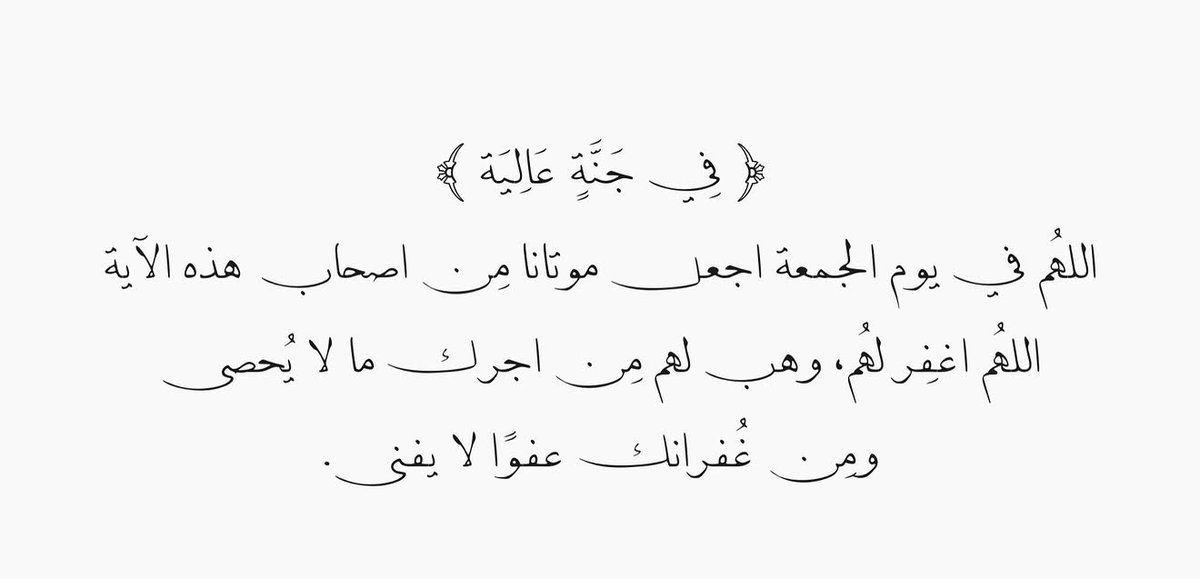 ﴿ فِي جَنَّةٍ عَالِيَة ﴾
اللهُم في يوم الجمعة اجعل موتانا مِن اصحاب هذه الآية
اللهُم اغفِر لهُم، وهب لهم مِن اجرك ما لا يُحصى
ومِن غُفرانك عفوًا لا يفنى .